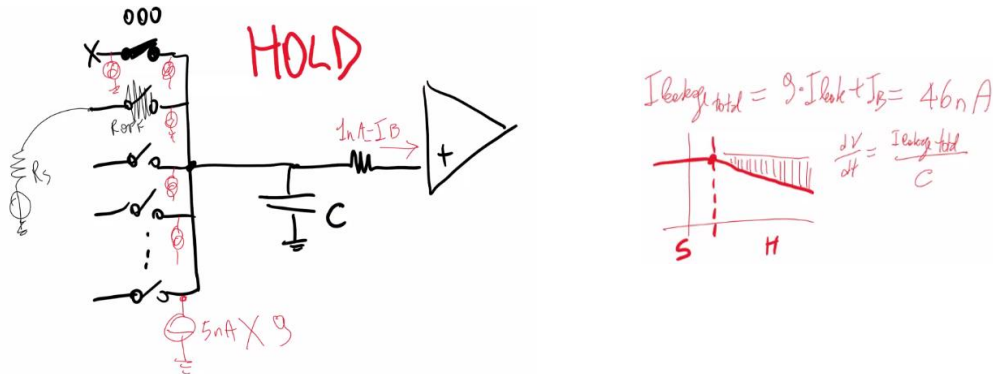 000
HOLD
X
Roff
Rs
1nA-IB
+
C
5nA X 9
I leakage total = 9·Ileak + IB = 46nA
dV/dt = I leakage total / C
S H